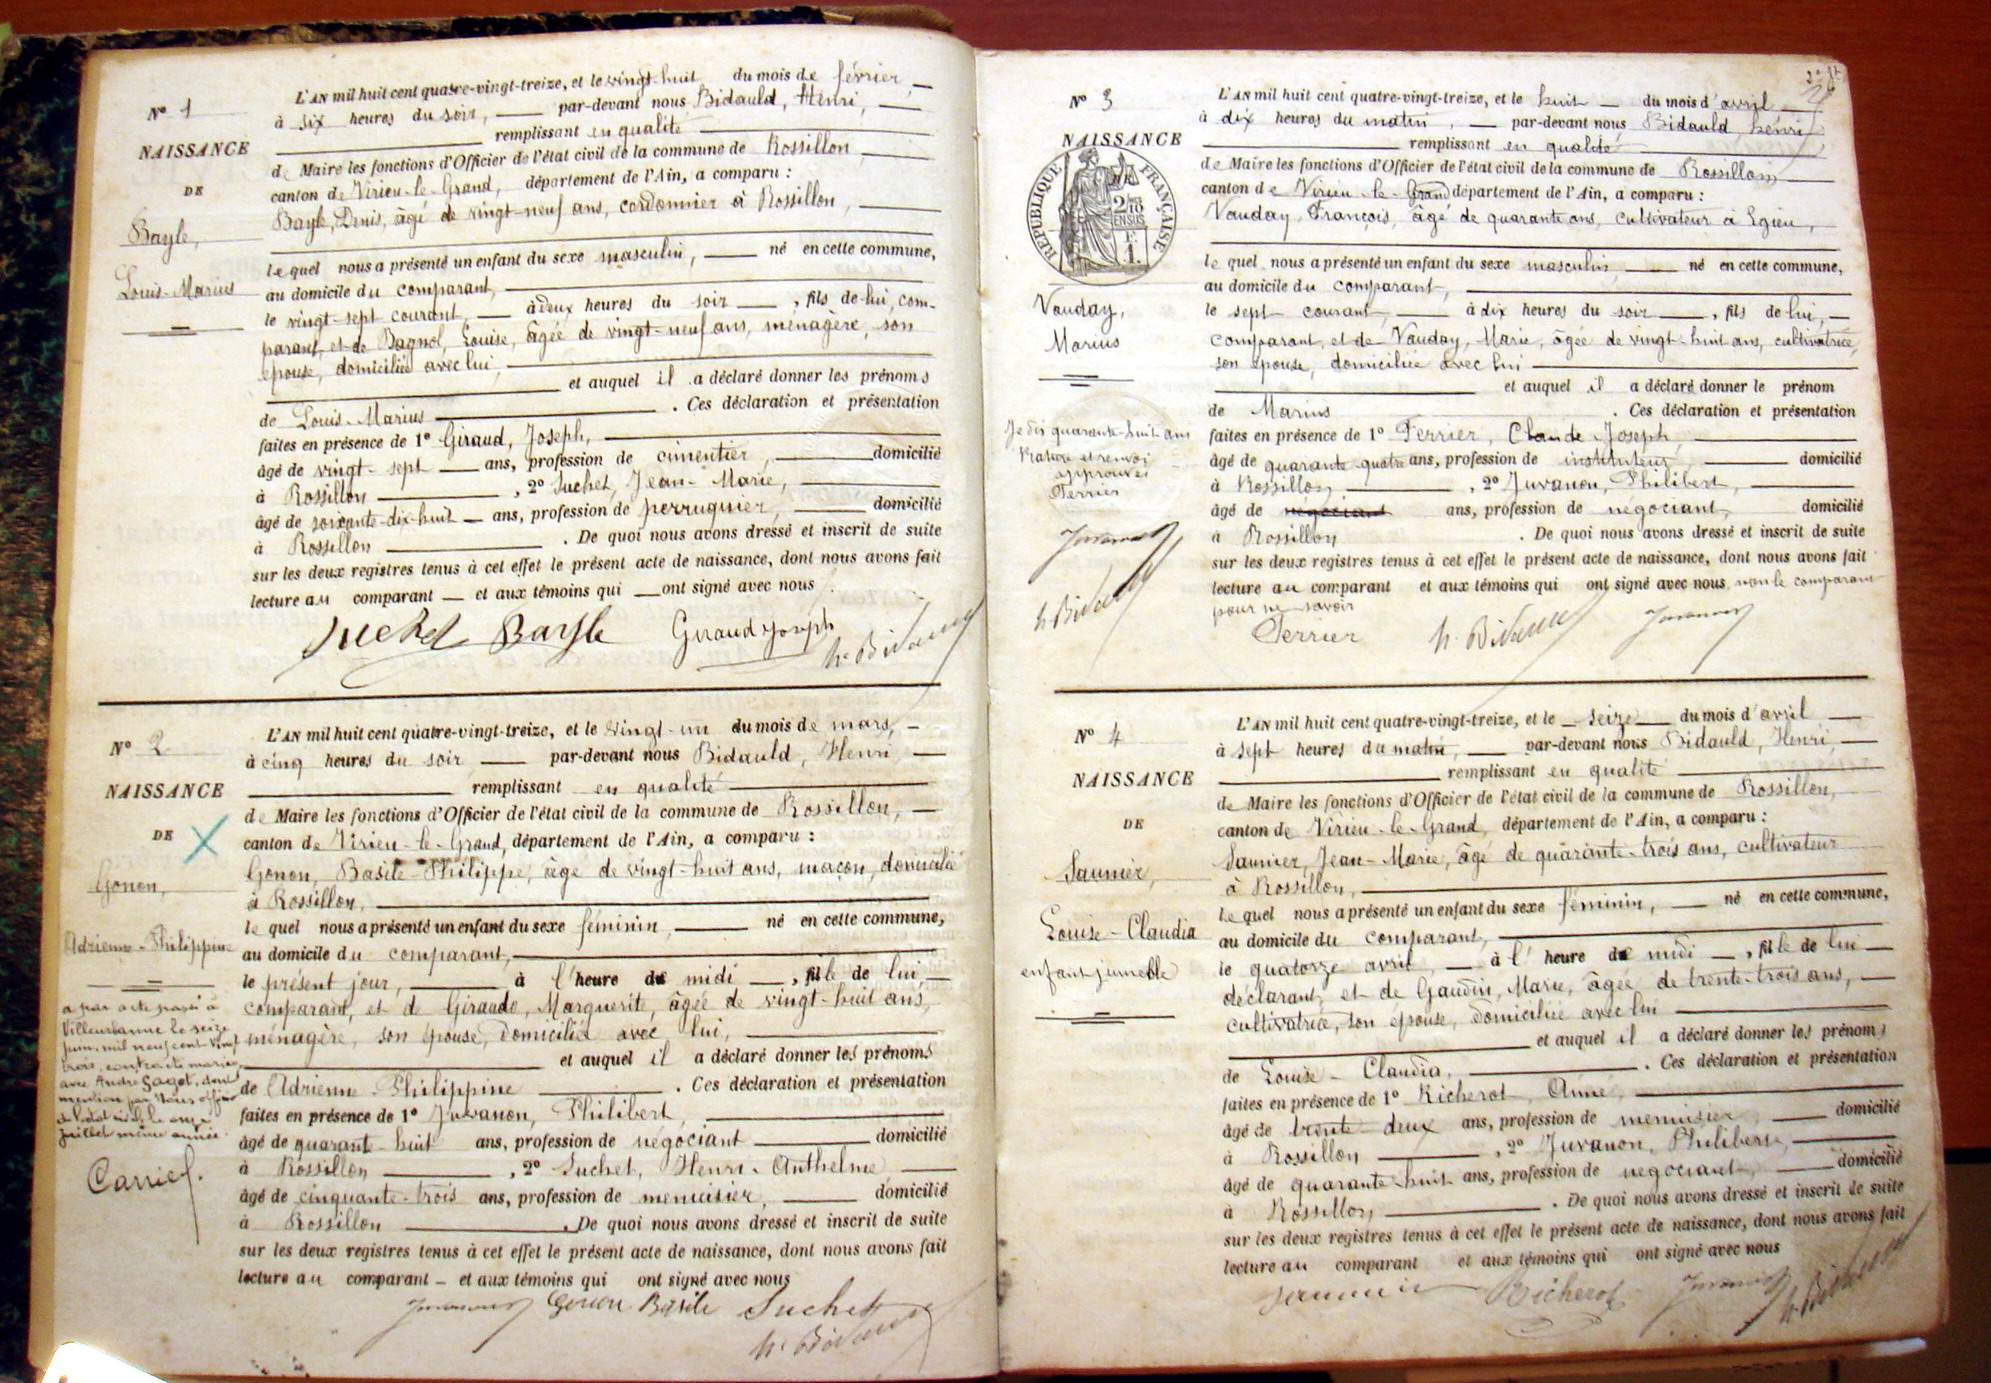 N° 1
NAISSANCE
DE
Bayle,
Louis-Marius
L'AN mil huit cent quatre-vingt-treize, et le vingt-huit du mois de février
à six heures du soir, par-devant nous Bidauld, Henri,
remplissant en qualité
de Maire les fonctions d'Officier de l'état civil de la commune de Rossillon,
canton de Virieu-le-Grand, département de l'Ain, a comparu :
Bayle, Denis, âgé de vingt-neuf ans, cordonnier à Rossillon,
lequel nous a présenté un enfant du sexe masculin, né en cette commune,
au domicile du comparant,
le vingt-sept courant, à deux heures du soir, fils de lui, com-
parant, et de Bagnol, Louise, âgée de vingt-neuf ans, ménagère, son
épouse, domiciliée avec lui,
et auquel il a déclaré donner les prénoms
de Louis-Marius. Ces déclaration et présentation
faites en présence de 1° Giraud, Joseph,
âgé de vingt-sept ans, profession de cimentier, domicilié
à Rossillon, 2° Suchet, Jean-Marie,
âgé de soixante-dix-huit ans, profession de perruquier, domicilié
à Rossillon. De quoi nous avons dressé et inscrit de suite
sur les deux registres tenus à cet effet le présent acte de naissance, dont nous avons fait
lecture au comparant et aux témoins qui ont signé avec nous.
Suchet Bayle Giraud Joseph h. Bidauld
N° 2
NAISSANCE
DE
Gonon,
Adrienne-Philippine
a par acte passé à
Villeurbanne le seize
juin mil neuf cent vingt
trois, contracté mariage
avec André Gagot, dont
mention par Nous officier
de l'état civil le onze
juillet même année.
Carrier.
L'AN mil huit cent quatre-vingt-treize, et le vingt-un du mois de mars,
à cinq heures du soir par-devant nous Bidauld, Henri
remplissant en qualité
de Maire les fonctions d'Officier de l'état civil de la commune de Rossillon,
canton de Virieu-le-Grand, département de l'Ain, a comparu :
Gonon, Basile-Philippe, âgé de vingt-huit ans, maçon, domicilié
à Rossillon,
lequel nous a présenté un enfant du sexe féminin, né en cette commune,
au domicile du comparant,
le présent jour, à l'heure de midi, fille de lui,
comparant, et de Giraudo, Marguerite, âgée de vingt-huit ans,
ménagère, son épouse, domiciliée avec lui,
et auquel il a déclaré donner les prénoms
de Adrienne-Philippine. Ces déclaration et présentation
faites en présence de 1° Juvanon, Philibert,
âgé de quarante-huit ans, profession de négociant domicilié
à Rossillon, 2° Suchet, Henri-Anthelme
âgé de cinquante-trois ans, profession de menuisier, domicilié
à Rossillon. De quoi nous avons dressé et inscrit de suite
sur les deux registres tenus à cet effet le présent acte de naissance, dont nous avons fait
lecture au comparant et aux témoins qui ont signé avec nous
Juvanon Gonon Basile Suchet
h. Bidauld
N° 3
NAISSANCE
RÉPUBLIQUE FRANÇAISE
2/10
EN SUS
1.
Vauday,
Marius
Je dis quarante-huit ans
Rature et renvoi
approuvés
Perrier
Juvanon
h. Bidauld
L'AN mil huit cent quatre-vingt-treize, et le huit du mois d'avril
à dix heures du matin, par-devant nous Bidauld, henri
remplissant en qualité
de Maire les fonctions d'Officier de l'état civil de la commune de Rossillon
canton de Virieu-le-Grand département de l'Ain, a comparu :
Vauday, François, âgé de quarante ans, cultivateur à Egieu,
lequel nous a présenté un enfant du sexe masculin, né en cette commune,
au domicile du comparant,
le sept courant, à dix heures du soir, fils de lui,
comparant, et de Vauday, Marie, âgée de vingt-huit ans, cultivatrice,
son épouse, domiciliée avec lui
et auquel il a déclaré donner le prénom
de Marius. Ces déclaration et présentation
faites en présence de 1° Perrier, Claude Joseph,
âgé de quarante-quatre ans, profession de instituteur, domicilié
à Rossillon, 2° Juvanon, Philibert,
âgé de négociant ans, profession de négociant, domicilié
à Rossillon. De quoi nous avons dressé et inscrit de suite
sur les deux registres tenus à cet effet le présent acte de naissance, dont nous avons fait
lecture au comparant et aux témoins qui ont signé avec nous, non le comparant
pour ne savoir
Perrier h. Bidauld Juvanon
N° 4
NAISSANCE
DE
Saunier,
Louise-Claudia
enfant jumelle
L'AN mil huit cent quatre-vingt-treize, et le seize du mois d'avril
à sept heures du matin, par-devant nous Bidauld, Henri,
remplissant en qualité
de Maire les fonctions d'Officier de l'état civil de la commune de Rossillon,
canton de Virieu-le-Grand, département de l'Ain, a comparu :
Saunier, Jean-Marie, âgé de quarante-trois ans, cultivateur
à Rossillon,
lequel nous a présenté un enfant du sexe féminin, né en cette commune,
au domicile du comparant,
le quatorze avril, à l'heure de midi, fille de lui
déclarant, et de Gaudin, Marie, âgée de trente-trois ans,
cultivatrice, son épouse, domiciliée avec lui
et auquel il a déclaré donner les prénoms
de Louise-Claudia. Ces déclaration et présentation
faites en présence de 1° Richerot, Aimé,
âgé de trente-deux ans, profession de menuisier, domicilié
à Rossillon, 2° Juvanon, Philibert,
âgé de quarante-huit ans, profession de négociant, domicilié
à Rossillon. De quoi nous avons dressé et inscrit de suite
sur les deux registres tenus à cet effet le présent acte de naissance, dont nous avons fait
lecture au comparant et aux témoins qui ont signé avec nous
Saunier Richerot Juvanon h. Bidauld